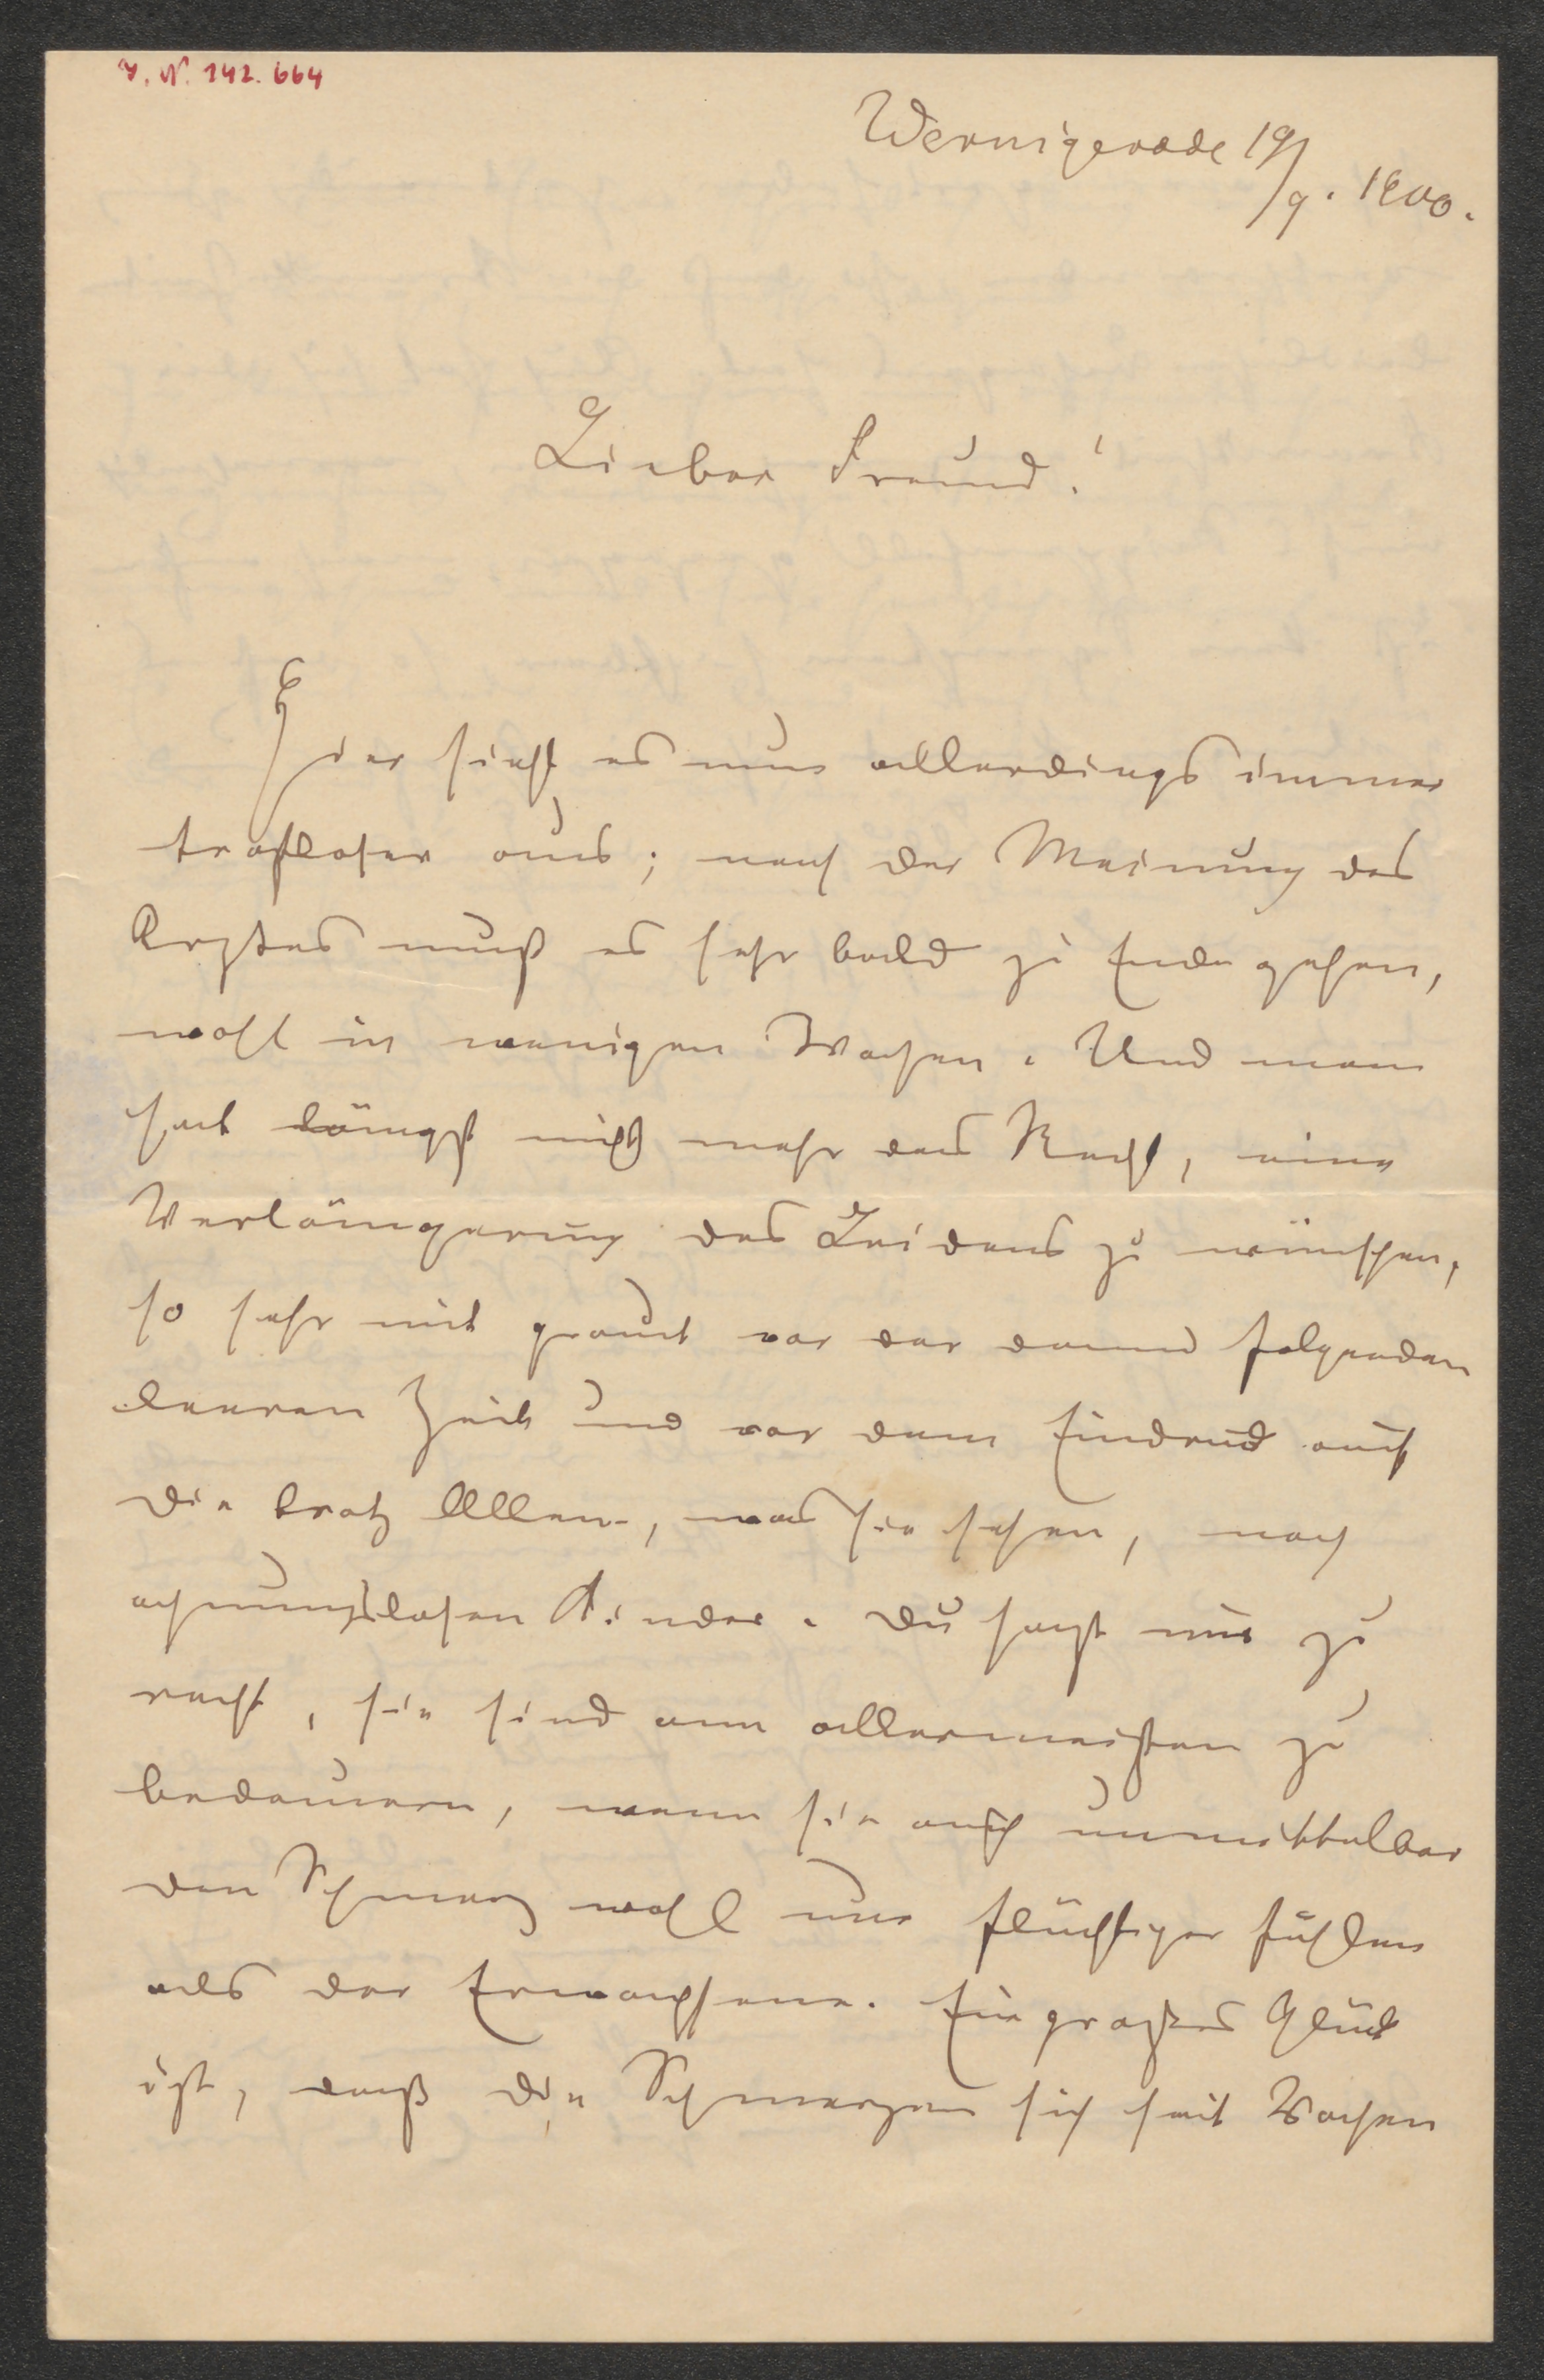 I. N. 142.664
Wernigerode 19/9. 1900.
Lieber Freund!
Hier sieht es nun allerdings immer
trostloser aus; nach der Meinung des
Arztes muß es sehr bald zu Ende gehen,
wohl in wenigen Wochen. Und man
hat längst nicht mehr das Recht, eine
Verlängerung des Leidens zu wünschen,
so sehr mir graut vor der dann folgenden
leeren Zeit und vor dem Eindruck auf
die trotz Allem, was sie sehen, noch
ahnungslosen Kinder. Du sagst mir zu
recht, sie sind am allermeisten zu
bedauern, wenn sie auch unmittelbar
den Schmerz wohl nur flüchtiger fühlen
als der Erwachsene. Ein großes Glück
ist, daß die Schmerzen sich seit Wochen